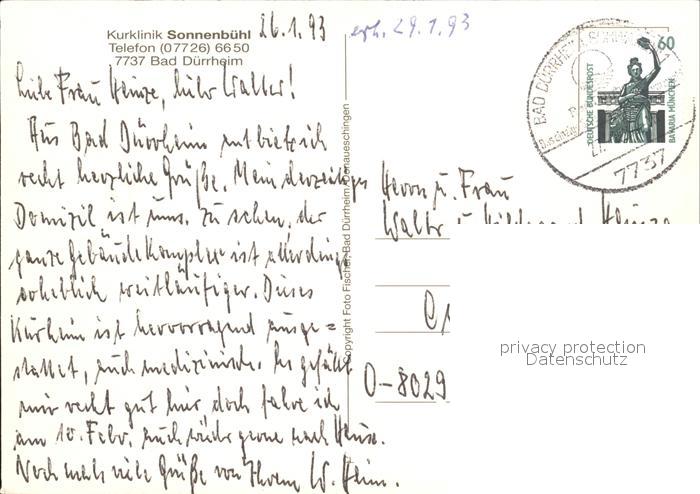 Kurklinik Sonnenbühl
Telefon (07726) 6650
7737 Bad Dürrheim
26.1.93
erh. 29.1.93
Liebe Frau Heinze, lieber Walter!
Aus Bad Dürrheim entbiete ich
recht herzliche Grüße. Mein derzeitiges
Domizil ist ums. zu sehen, der
ganze Gebäudekomplex ist allerdings
erheblich weitläufiger. Dieses
Kurheim ist hervorragend ausge=
stattet, auch medizinisch. Es gefällt
mir recht gut hier, doch fahre ich
am 10. Febr. auch wieder gerne nach Hause.
Nochmals viele Grüße von Ihrem W.
Copyright Foto Fischer, Bad Dürrheim/Donaueschingen
BAD DÜRRHEIM
7737
60
DEUTSCHE BUNDESPOST
BAVARIA MÜNCHEN
Herrn u. Frau
Walter u.
O-8029
privacy protection
Datenschutz